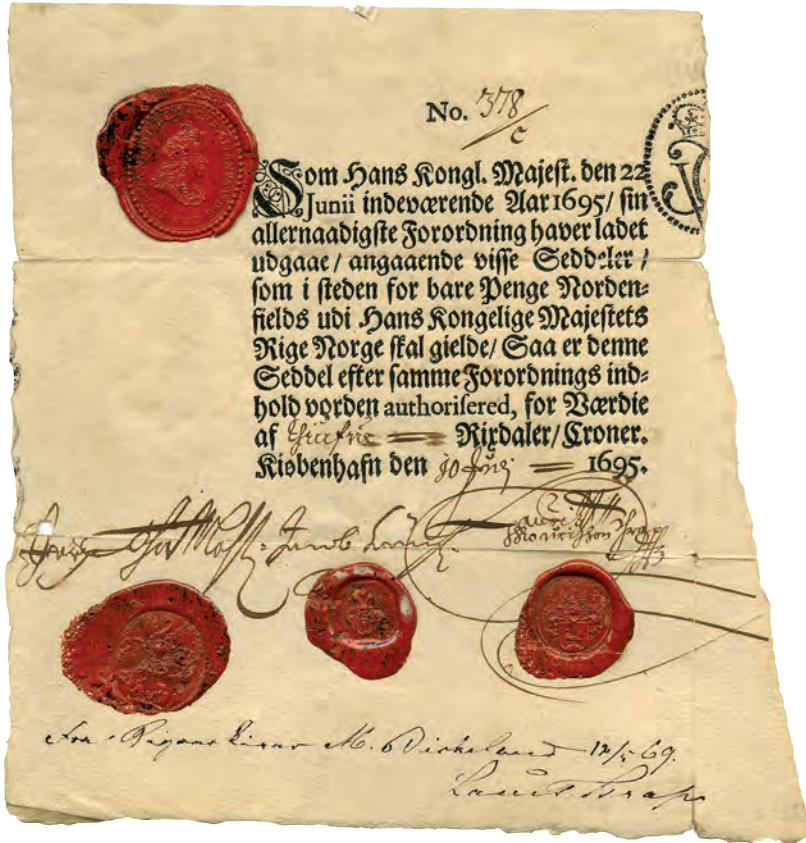 No. 378
c
Som Hans Kongl. Majest. den 22
Junii indeværende Aar 1695/ sin
allernaadigste Forordning haver ladet
udgaae / angaaende visse Seddeler /
som i steden for bare Penge Norden=
fields udi Hans Kongelige Majestets
Rige Norge skal gielde/ Saa er denne
Seddel efter samme Forordnings ind=
hold vorden authorisered, for Værdie
af Rixdaler/ Croner.
Kiøbenhafn den 1695.
Fra Rigsarkivar M. Birkeland 12/5 69.